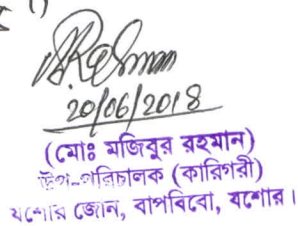 20/06/2018
(মোঃ মজিবুর রহমান)
উপ-পরিচালক (কারিগরী)
যশোর জোন, বাপবিবো, যশোর।